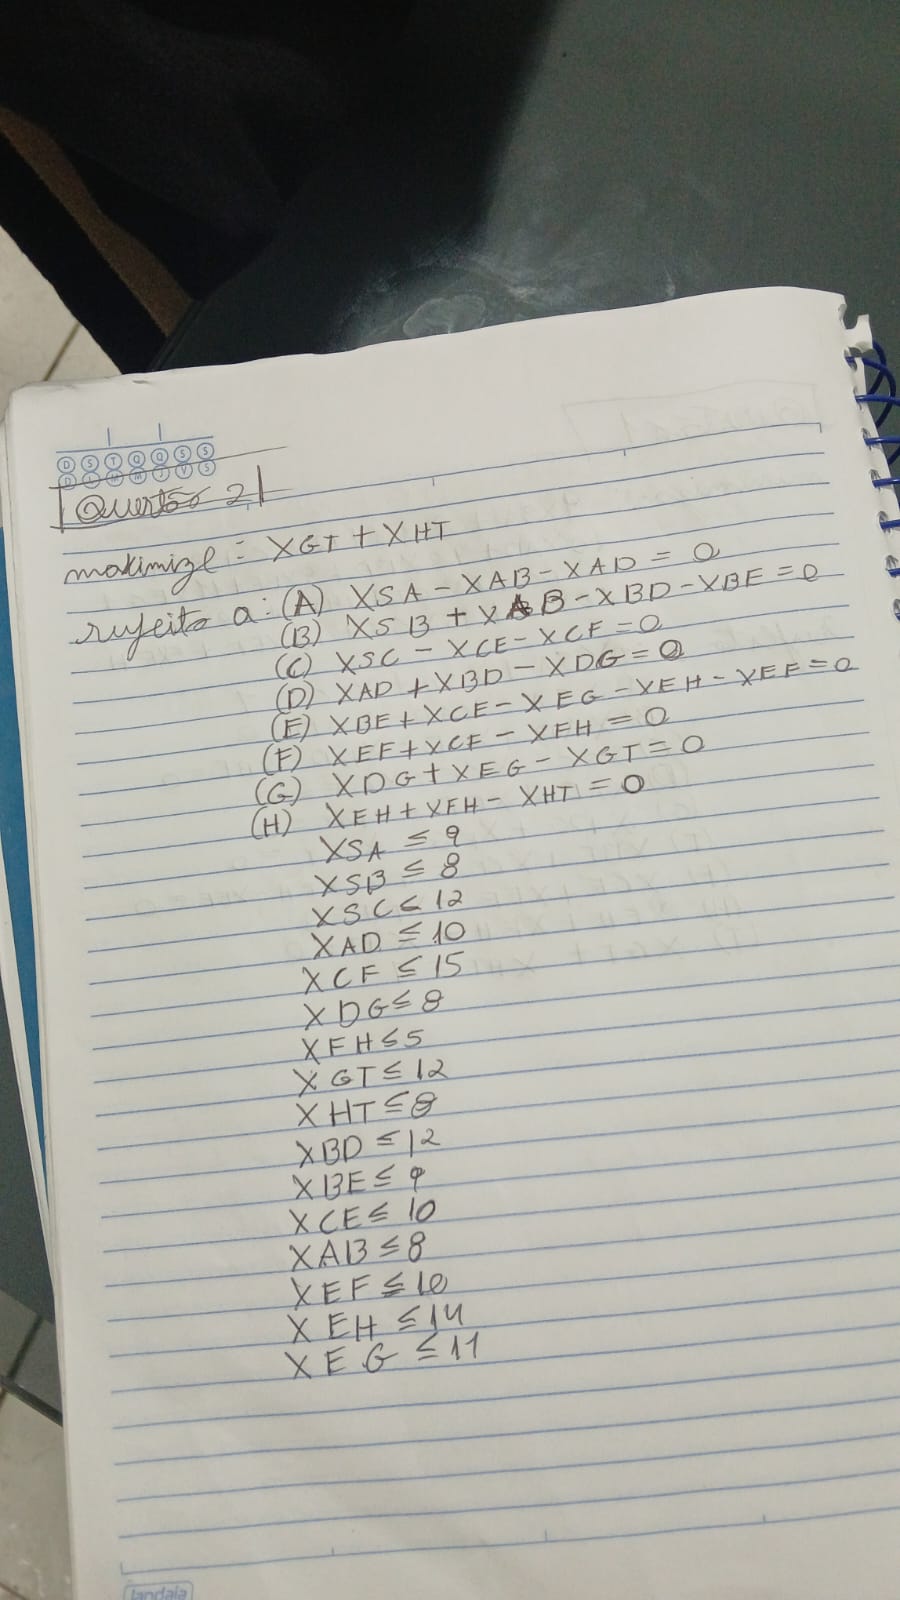 D S T Q Q S S
D L M M J V S
Questão 2
maximize: XGT + XHT
sujeito a: (A) XSA - XAB - XAD = 0
(B) XSB + XAB - XBD - XBE = 0
(C) XSC - XCE - XCF = 0
(D) XAD + XBD - XDG = 0
(E) XBE + XCE - XEG - XEH - XEF = 0
(F) XEF + XCF - XFH = 0
(G) XDG + XEG - XGT = 0
(H) XEH + XFH - XHT = 0
XSA ≤ 9
XSB ≤ 8
XSC ≤ 12
XAD ≤ 10
XCF ≤ 15
XDG ≤ 8
XFH ≤ 5
XGT ≤ 12
XHT ≤ 8
XBD ≤ 12
XBE ≤ 9
XCE ≤ 10
XAB ≤ 8
XEF ≤ 10
XEH ≤ 14
XEG ≤ 11
jandaia